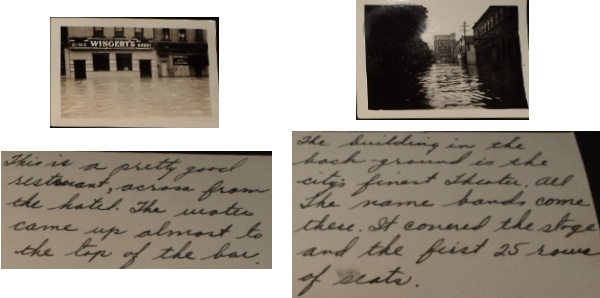 WINGERT'S
This is a pretty good
resturant, across from
the hotel. The water
came up almost to
the top of the bar.
The building in the
back-ground is the
city's finest Theater. All
The name bands come
there. It covered the stage
and the first 25 rows
of seats.